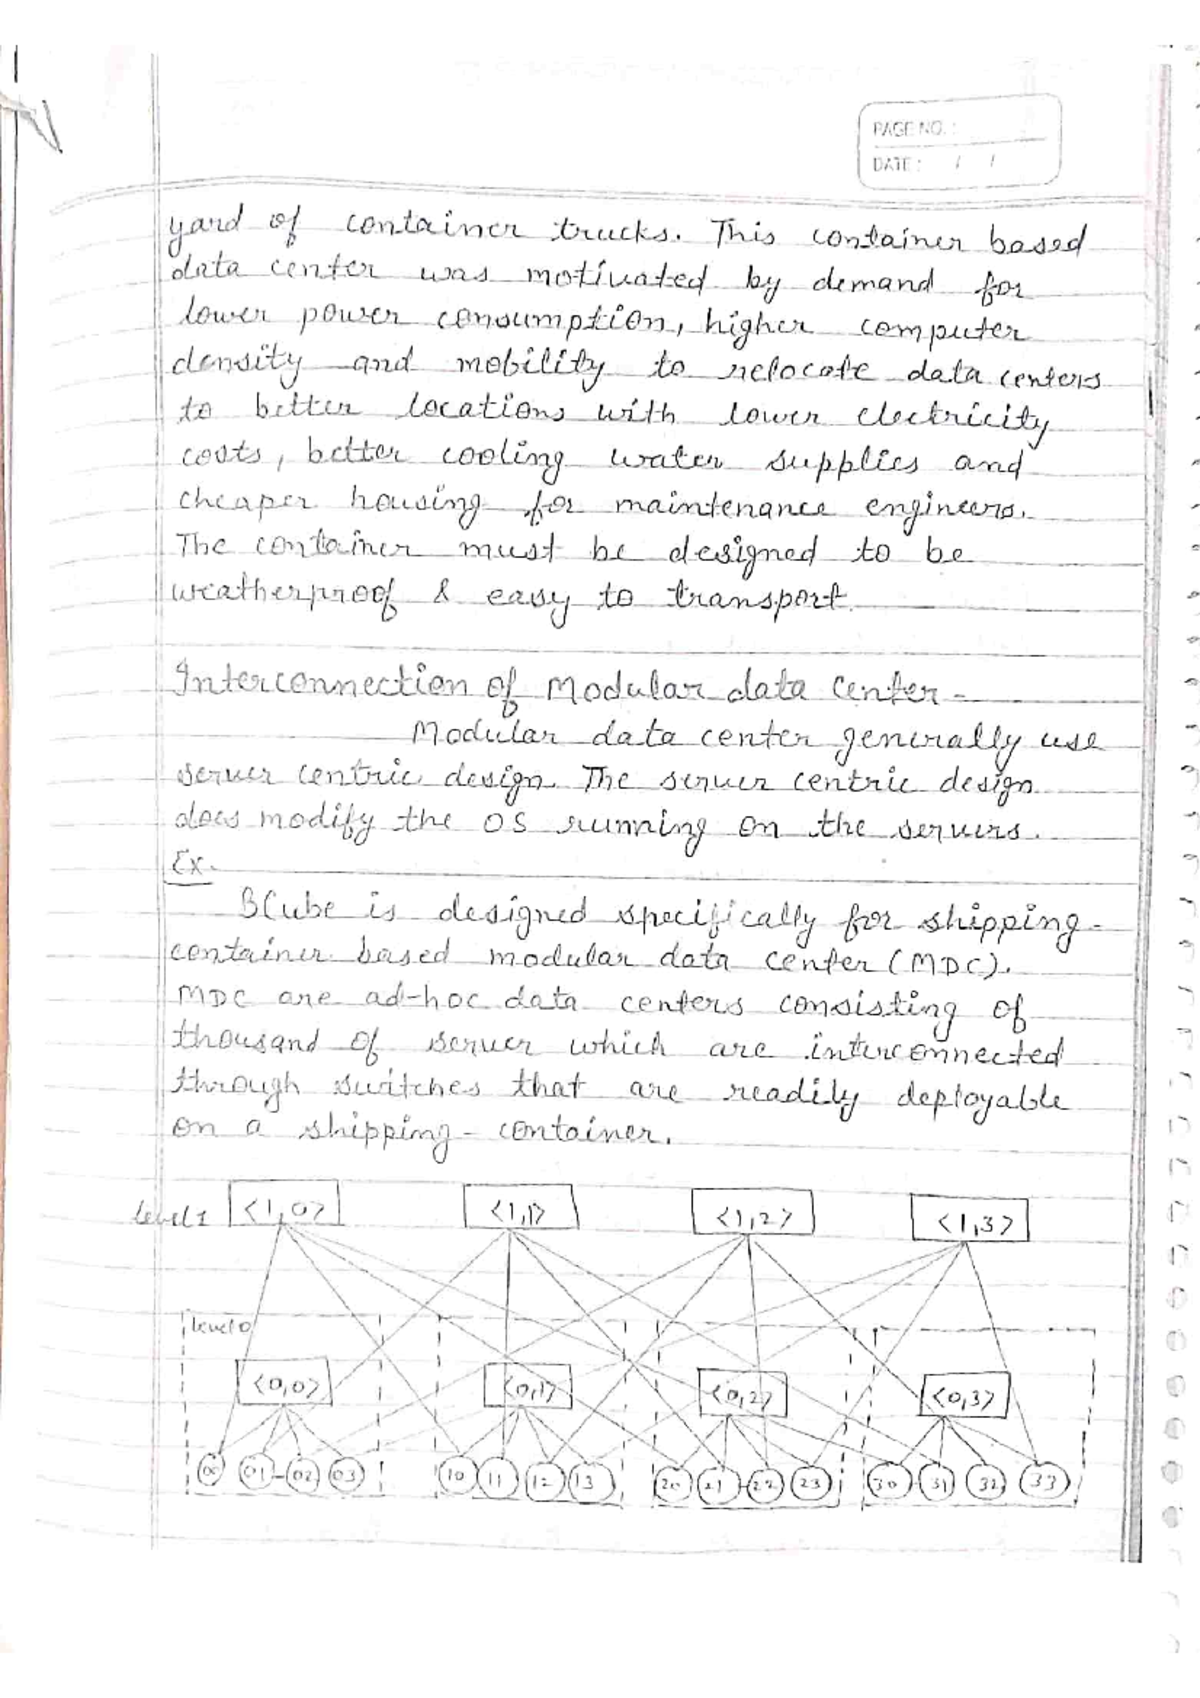 PAGE NO. :
DATE : / /
yard of container trucks. This container based
data center was motivated by demand for
lower power consumption, higher computer
density and mobility to relocate data centers
to better locations with lower electricity
costs, better cooling water supplies and
cheaper housing for maintenance engineers.
The container must be designed to be
weatherproof & easy to transport.
Interconnection of Modular data center -
Modular data center generally use
server centric design. The server centric design
does modify the OS running on the servers.
Ex.
BCube is designed specifically for shipping-
container based modular data center (MDC).
MDC are ad-hoc data centers consisting of
thousand of server which are interconnected
through switches that are readily deployable
on a shipping-container.
Level 1 <1,0> <1,1> <1,2> <1,3>
Level 0
<0,0> <0,1> <0,2> <0,3>
00 01 02 03 10 11 12 13 20 21 22 23 30 31 32 33